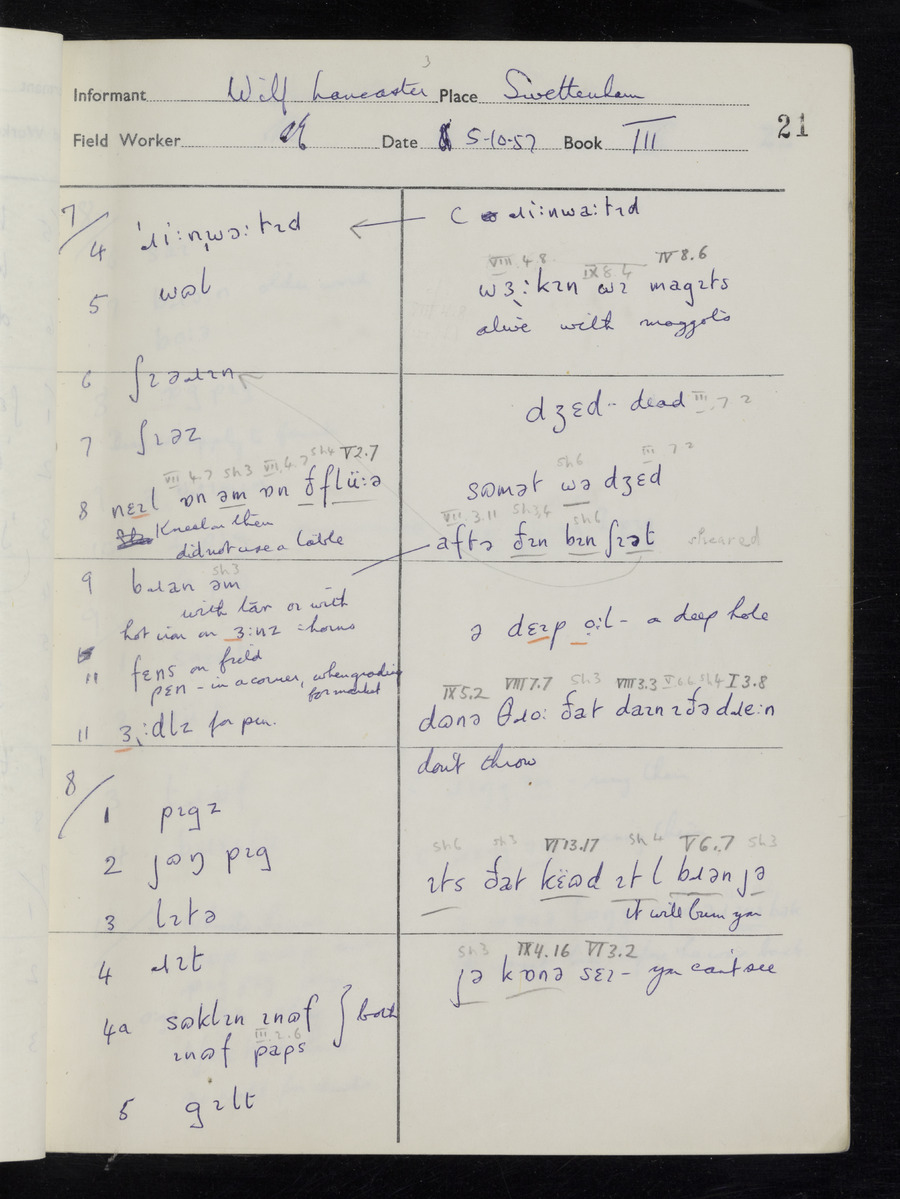 Informant Wilf Lancaster Place Swettenham
21
Field Worker Date 5-10-57 Book III
7/
4 ˈɹiːnˌwəːtɪd
C ɹiːnwaːtɪd
5 wʊl
VIII.4.8 IX 8 4 IV 8.6
wɜːkɪn wɪ magɪts
alive with maggots
6 ʃɪəɹɪn
dʒɛd - dead III.7 2
7 ʃɪəz
sh6 III 7 2
sʊmət wə dʒɛd
VII 4.7 sh3 VII.6.7 sh4 V2.7
8 nɛɪl ɒn əm ɒn ðflüːə
Kneel on them
did not use a table
VII.3.11 sh3,4 sh6
aftə ðɪn bɪn ʃɪət sheared
sh3
9 bɹan əm
with tar or with
hot iron on ɜːnz = horns
ə dɛɪp oːl - a deep hole
11 fɛns on field
pɛn - in a corner, when grading
for market
11 ɜːdlz for pen.
IX5.2 VIII7.7 sh3 VIII3.3 V6.6 sh4 I3.8
dʊnə θɹoː ðat daɪn ɪðə dɹeːn
don't throw
8/
1 pɪgz
2 jʊŋ pɪg
sh6 sh3 VI13.17 sh4 V6.7 sh3
ɪts ðat këʊd ɪtl bɹən jə
it will burn you
3 lɪtə
4 ɹɪt
sh3 IX4.16 VI3.2
jə kɒnə sɛɪ - you can't see
4a sʊklɪn ɪnʊf } both
III.2.6
ɪnʊf paps
5 gɪlt